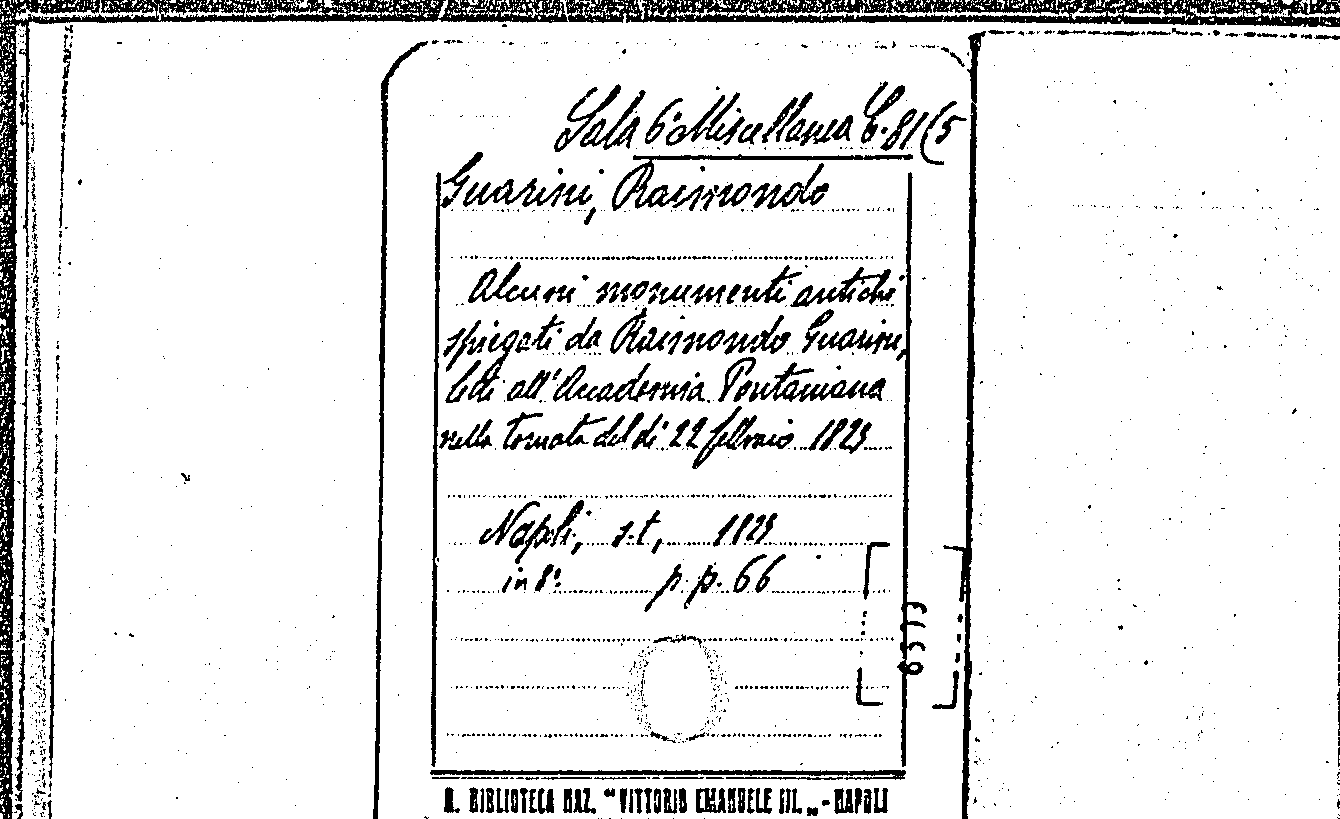 Sala 6ª Miscellanea C. 81(5
Guarini, Raimondo
Alcuni monumenti antichi
spiegati da Raimondo Guarini,
letti all'Accademia Pontaniana
nella tornata del dì 22 febbraio 1823
Napoli, s.t, 1823
in 8º. p. p. 66
R. BIBLIOTECA NAZ. "VITTORIO EMANUELE III„ - NAPOLI